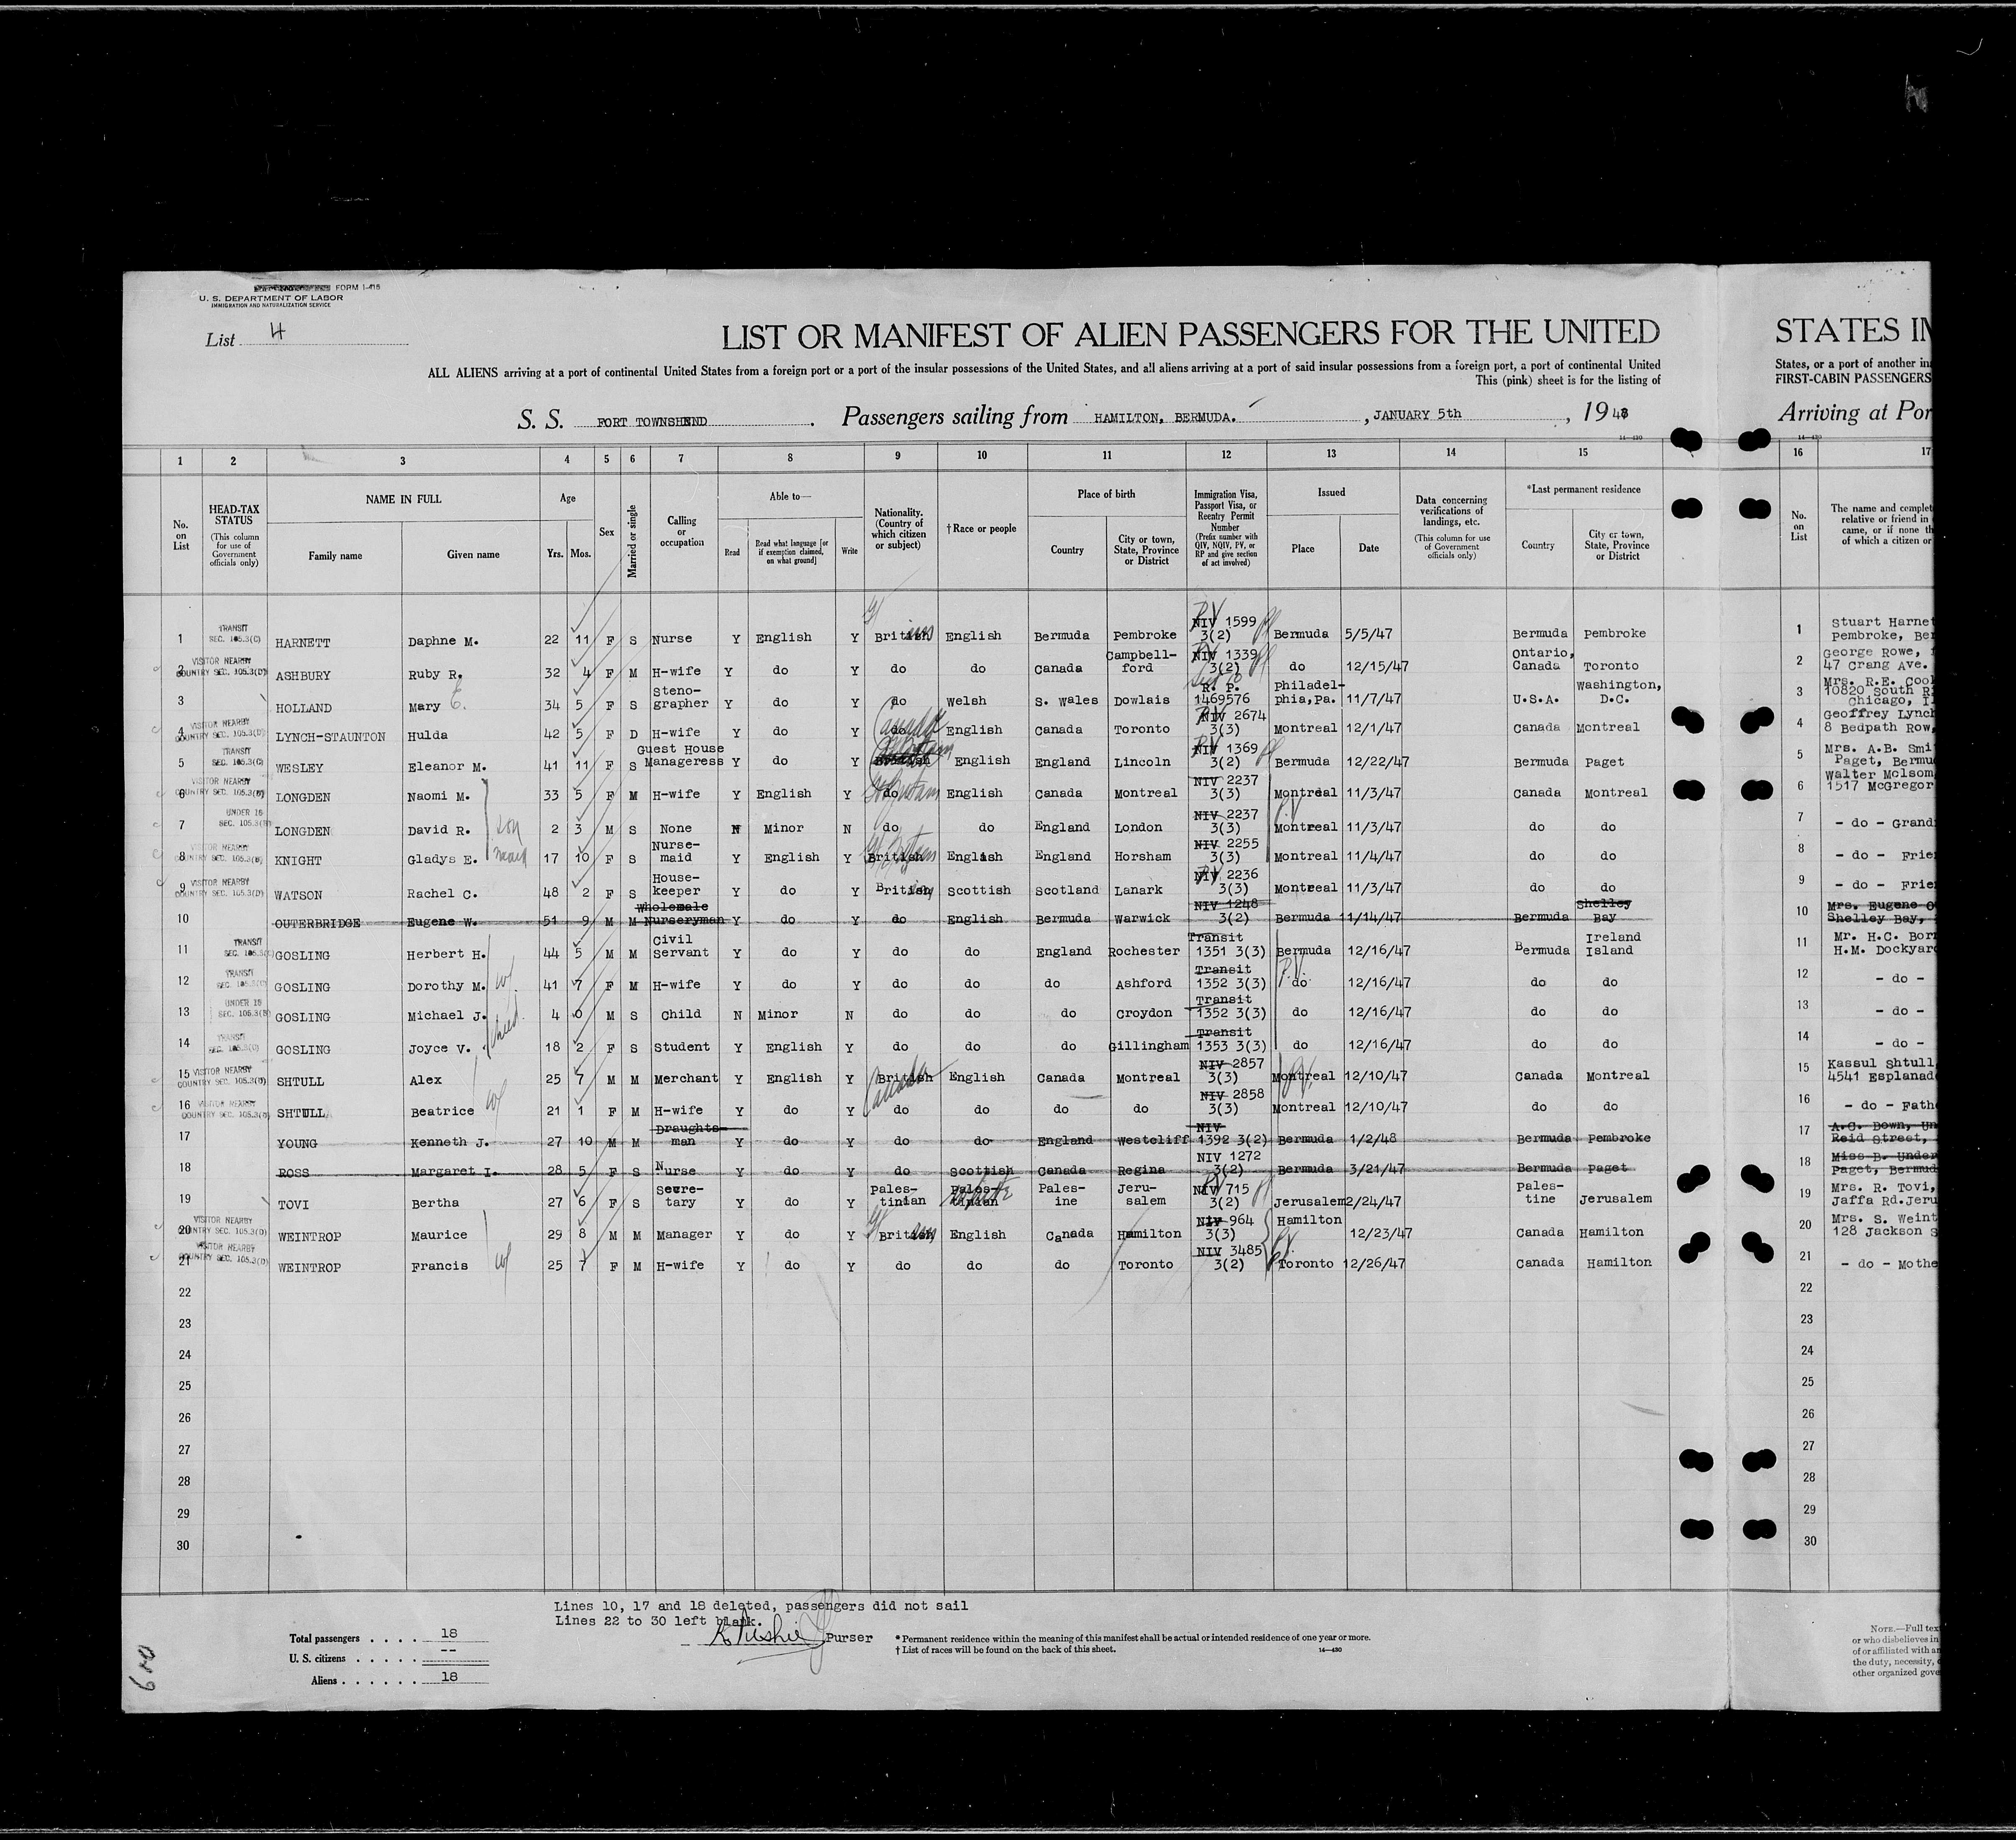 FORM I-416
U. S. DEPARTMENT OF LABOR
IMMIGRATION AND NATURALIZATION SERVICE
List 4
LIST OR MANIFEST OF ALIEN PASSENGERS FOR THE UNITED
STATES IN
ALL ALIENS arriving at a port of continental United States from a foreign port or a port of the insular possessions of the United States, and all aliens arriving at a port of said insular possessions from a foreign port, a port of continental United
States, or a port of another in
This (pink) sheet is for the listing of
FIRST-CABIN PASSENGERS
S. S. FORT TOWNSHEND. Passengers sailing from HAMILTON, BERMUDA. , JANUARY 5th , 1948
Arriving at Por
1 2 3 4 5 6 7 8 9 10 11 12 13 14 15 16 17
No. on List
HEAD-TAX STATUS (This column for use of Government officials only)
NAME IN FULL
Family name Given name
Age
Yrs. Mos.
Sex
Married or single
Calling or occupation
Able to—
Read Read what language [or if exemption claimed, on what ground] Write
Nationality. (Country of which citizen or subject)
†Race or people
Place of birth
Country City or town, State, Province or District
Immigration Visa, Passport Visa, or Reentry Permit Number (Prefix number with QIV, NQIV, PV, or RP and give section of act involved)
Issued
Place Date
Data concerning verifications of landings, etc. (This column for use of Government officials only)
*Last permanent residence
Country City or town, State, Province or District
No. on List
The name and complet
relative or friend in
came, or if none th
of which a citizen or
1 TRANSIT SEC. 105.3(C) HARNETT Daphne M. 22 11 F S Nurse Y English Y British English Bermuda Pembroke NIV 1599 3(2) Bermuda 5/5/47 Bermuda Pembroke 1 Stuart Harnet Pembroke, Ber
2 VISITOR NEARBY COUNTRY SEC. 105.3(D) ASHBURY Ruby R. 32 4 F M H-wife Y do Y do do Canada Campbell-ford NIV 1339 3(2) do 12/15/47 Ontario, Canada Toronto 2 George Rowe, 47 Crang Ave.
3 HOLLAND Mary E. 34 5 F S Steno-grapher Y do Y do Welsh S. Wales Dowlais R. P. 1469576 Philadel-phia, Pa. 11/7/47 U.S.A. Washington, D.C. 3 Mrs. R.E. Cool 10820 South R Chicago, I
4 VISITOR NEARBY COUNTRY SEC. 105.3(D) LYNCH-STAUNTON Hulda 42 5 F D H-wife Y do Y do Canada English Canada Toronto NIV 2674 3(3) Montreal 12/1/47 Canada Montreal 4 Geoffrey Lynch 8 Bedpath Row,
5 TRANSIT SEC. 105.3(C) WESLEY Eleanor M. 41 11 F S Guest House Manageress Y do Y British English England Lincoln NIV 1369 3(2) Bermuda 12/22/47 Bermuda Paget 5 Mrs. A.B. Smi Paget, Bermu
6 VISITOR NEARBY COUNTRY SEC. 105.3(D) LONGDEN Naomi M. 33 5 F M H-wife Y English Y do English Canada Montreal NIV 2237 3(3) Montreal 11/3/47 Canada Montreal 6 Walter Molsom 1517 McGregor
7 UNDER 16 SEC. 105.3(B) LONGDEN David R. son 2 3 M S None N Minor N do do England London NIV 2237 3(3) Montreal 11/3/47 do do 7 - do - Grand
8 VISITOR NEARBY COUNTRY SEC. 105.3(D) KNIGHT Gladys E. maid 17 10 F S Nurse-maid Y English Y British English England Horsham NIV 2255 3(3) Montreal 11/4/47 do do 8 - do - Frie
9 VISITOR NEARBY COUNTRY SEC. 105.3(D) WATSON Rachel C. 48 2 F S House-keeper Y do Y British Scottish Scotland Lanark NIV 2236 3(3) Montreal 11/3/47 do do 9 - do - Frie
10 OUTERBRIDGE Eugene W. 51 9 M M Wholesale Nurseryman Y do Y do English Bermuda Warwick NIV 1248 3(2) Bermuda 11/14/47 Bermuda Shelley Bay 10 Mrs. Eugene O Shelley Bay,
11 TRANSIT SEC. 105.3(C) GOSLING Herbert H. 44 5 M M Civil Servant Y do Y do do England Rochester Transit 1351 3(3) Bermuda 12/16/47 Bermuda Ireland Island 11 Mr. H.C. Bor H.M. Dockyard
12 TRANSIT SEC. 105.3(C) GOSLING Dorothy M. wf 41 7 F M H-wife Y do Y do do do Ashford Transit 1352 3(3) P.V. do 12/16/47 do do 12 - do -
13 UNDER 16 SEC. 105.3(B) GOSLING Michael J. 4 0 M S Child N Minor N do do do Croydon Transit 1352 3(3) do 12/16/47 do do 13 - do -
14 TRANSIT SEC. 105.3(C) GOSLING Joyce V. 18 2 F S Student Y English Y do do do Gillingham Transit 1353 3(3) do 12/16/47 do do 14 - do -
15 VISITOR NEARBY COUNTRY SEC. 105.3(D) SHTULL Alex 25 7 M M Merchant Y English Y British Canada English Canada Montreal NIV 2857 3(3) Montreal 12/10/47 Canada Montreal 15 Kassul Shtull 4541 Esplanad
16 VISITOR NEARBY COUNTRY SEC. 105.3(D) SHTULL Beatrice wf 21 1 F M H-wife Y do Y do do do do NIV 2858 3(3) Montreal 12/10/47 do do 16 - do - Fath
17 YOUNG Kenneth J. 27 10 M M Draughts-man Y do Y do do England Westcliff NIV 1392 3(2) Bermuda 1/2/48 Bermuda Pembroke 17 A.C. Down, Un Reid Street,
18 ROSS Margaret I. 28 5 F S Nurse Y do Y do Scottish Canada Regina NIV 1272 3(2) Bermuda 3/21/47 Bermuda Paget 18 Miss B. Under Paget, Bermud
19 TOVI Bertha 27 6 F S Secre-tary Y do Y Pales-tinian Pales-tinian Pales-ine Jeru-salem NIV 715 3(2) Jerusalem 2/24/47 Pales-tine Jerusalem 19 Mrs. R. Tovi, Jaffa Rd. Jeru
20 VISITOR NEARBY COUNTRY SEC. 105.3(D) WEINTROP Maurice 29 8 M M Manager Y do Y British English Canada Hamilton NIV 964 3(3) Hamilton 12/23/47 Canada Hamilton 20 Mrs. S. Weint 128 Jackson S
21 VISITOR NEARBY COUNTRY SEC. 105.3(D) WEINTROP Francis wf 25 7 F M H-wife Y do Y do do do Toronto NIV 3485 3(2) Toronto 12/26/47 Canada Hamilton 21 - do - Mothe
22 22
23 23
24 24
25 25
26 26
27 27
28 28
29 29
30 30
Lines 10, 17 and 18 deleted, passengers did not sail
Lines 22 to 30 left blank.
Purser
Total passengers . . . . 18
U. S. citizens . . . . . --
Aliens . . . . . . 18
* Permanent residence within the meaning of this manifest shall be actual or intended residence of one year or more.
† List of races will be found on the back of this sheet.
14—430
NOTE.—Full tex
or who disbelieves in
of or affiliated with an
the duty, necessity,
other organized gove
600